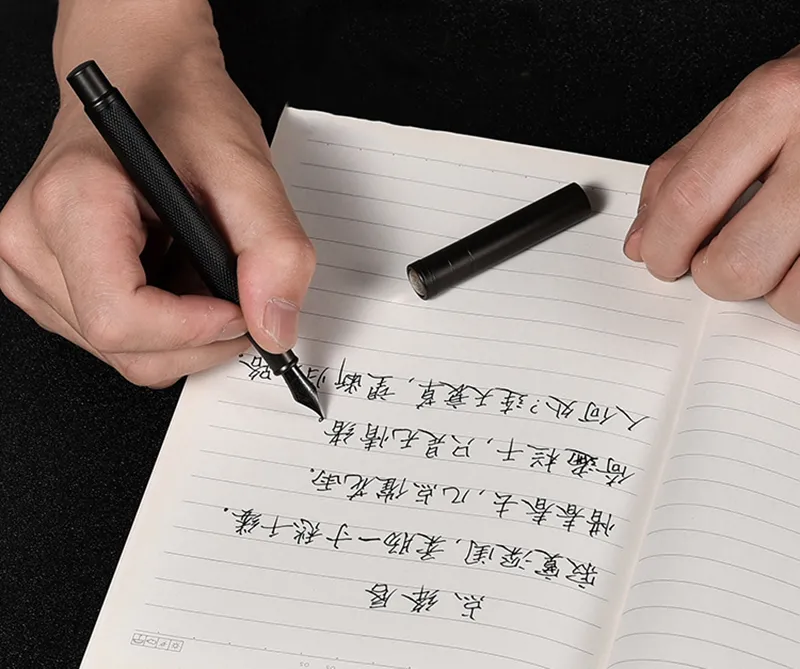 点绛唇
寂寞深闺,柔肠一寸愁千缕.
惜春春去,几点催花雨.
倚遍栏干,只是无情绪
人何处?连天衰草,望断归路.